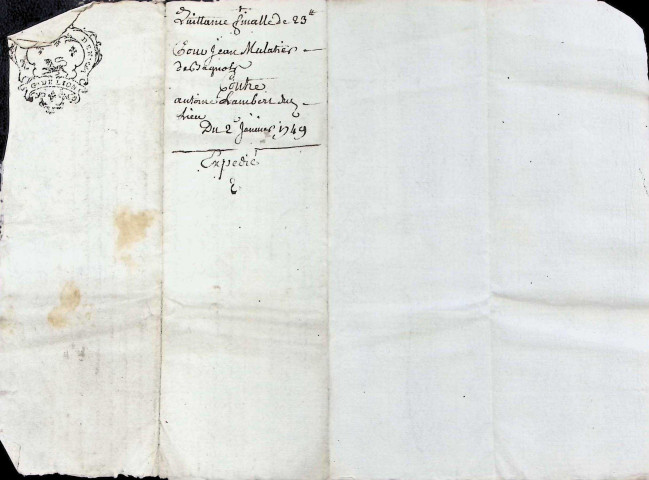 G. DE LION
Quittance finalle de 23  tt
Pour Jean Mulatier
de Bagnols
Contre
antoine Lambert dud
Lieu
Du 2e Janvier 1749
Expedié